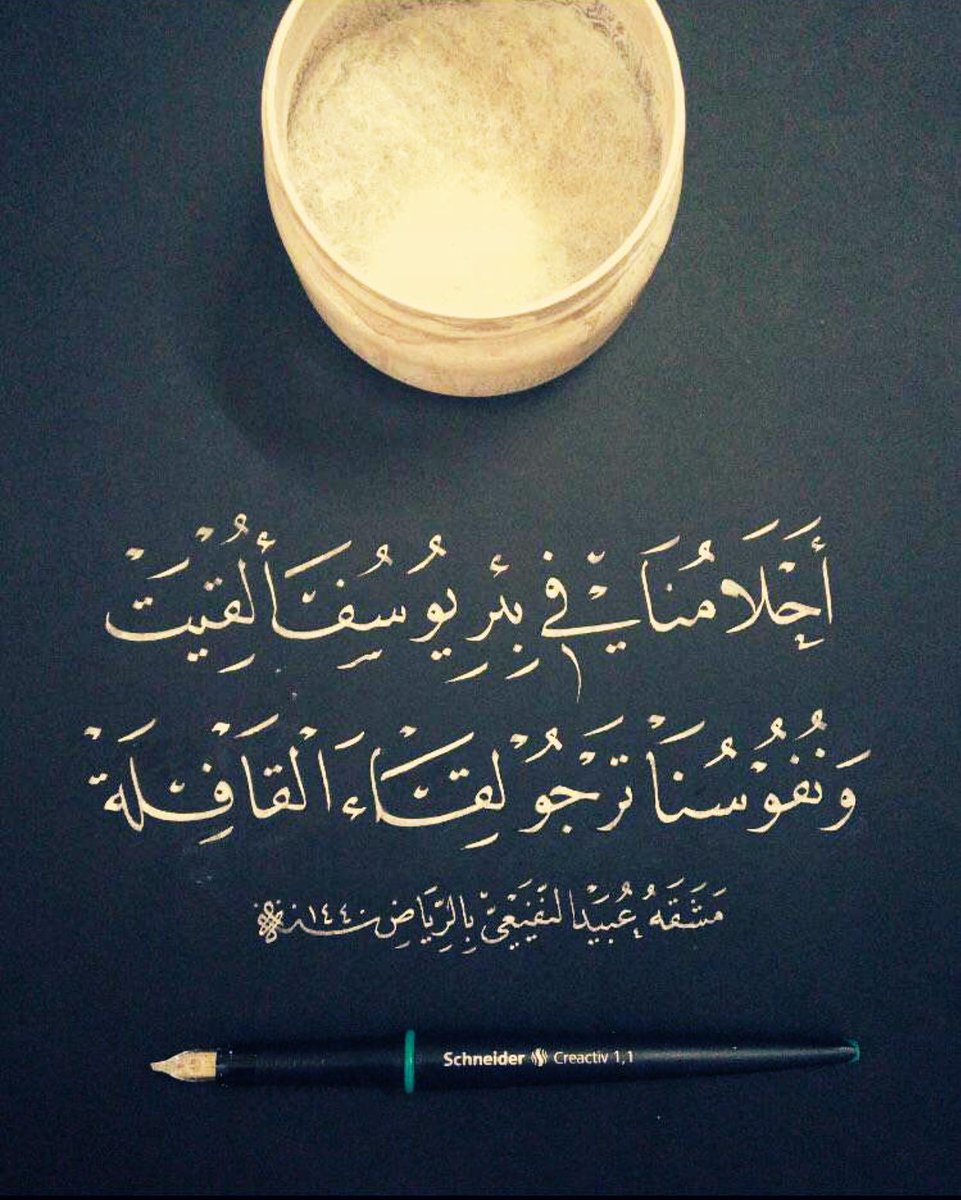 أَحْلَامُنَا فِيْ بِئْرِ يُوسُفَ أُلْقِيَتْ
وَنُفُوْسُنَا تَرْجُوْ لِقَاءَ الْقَافِلَةْ
مَشَقَهُ عُبَيْد النُّفَيْعِيّ بِالرِّيَاضِ سنة ١٤٤٠
Schneider Creactiv 1,1